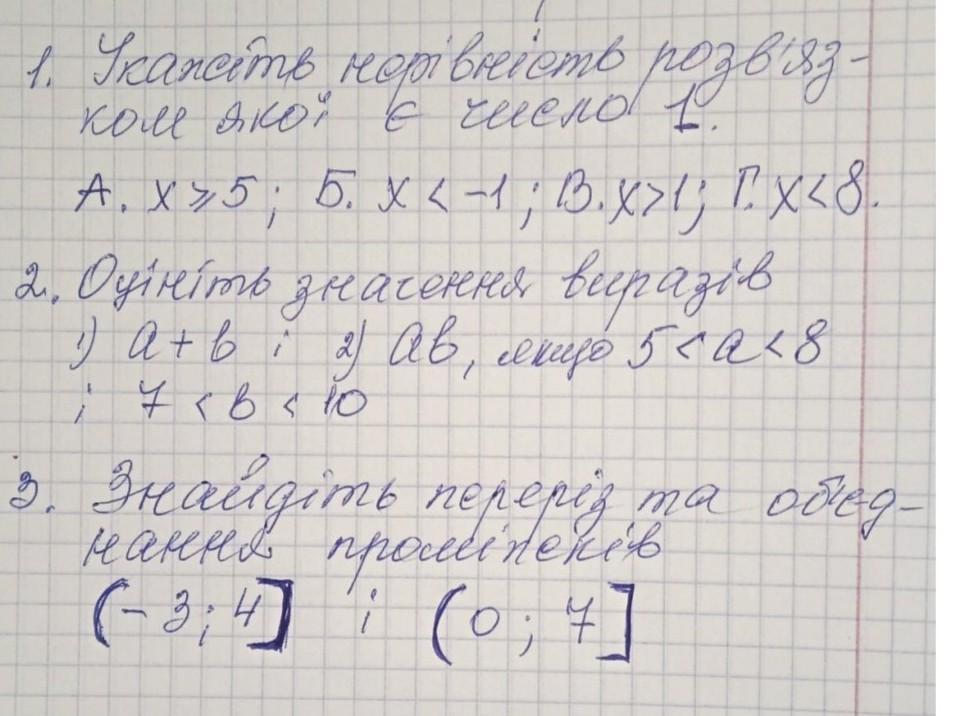 1. Укажіть нерівність розв'яз-
ком якої є число 1.
А. x ⩾ 5; Б. x < -1; В. x>1; Г. x<8.
2. Оцініть значення виразів
1) a + b і 2) ab, якщо 5 < a < 8
і 7 < b < 10
3. Знайдіть переріз та об'єд-
нання проміжків
(-3; 4] і (0; 7]